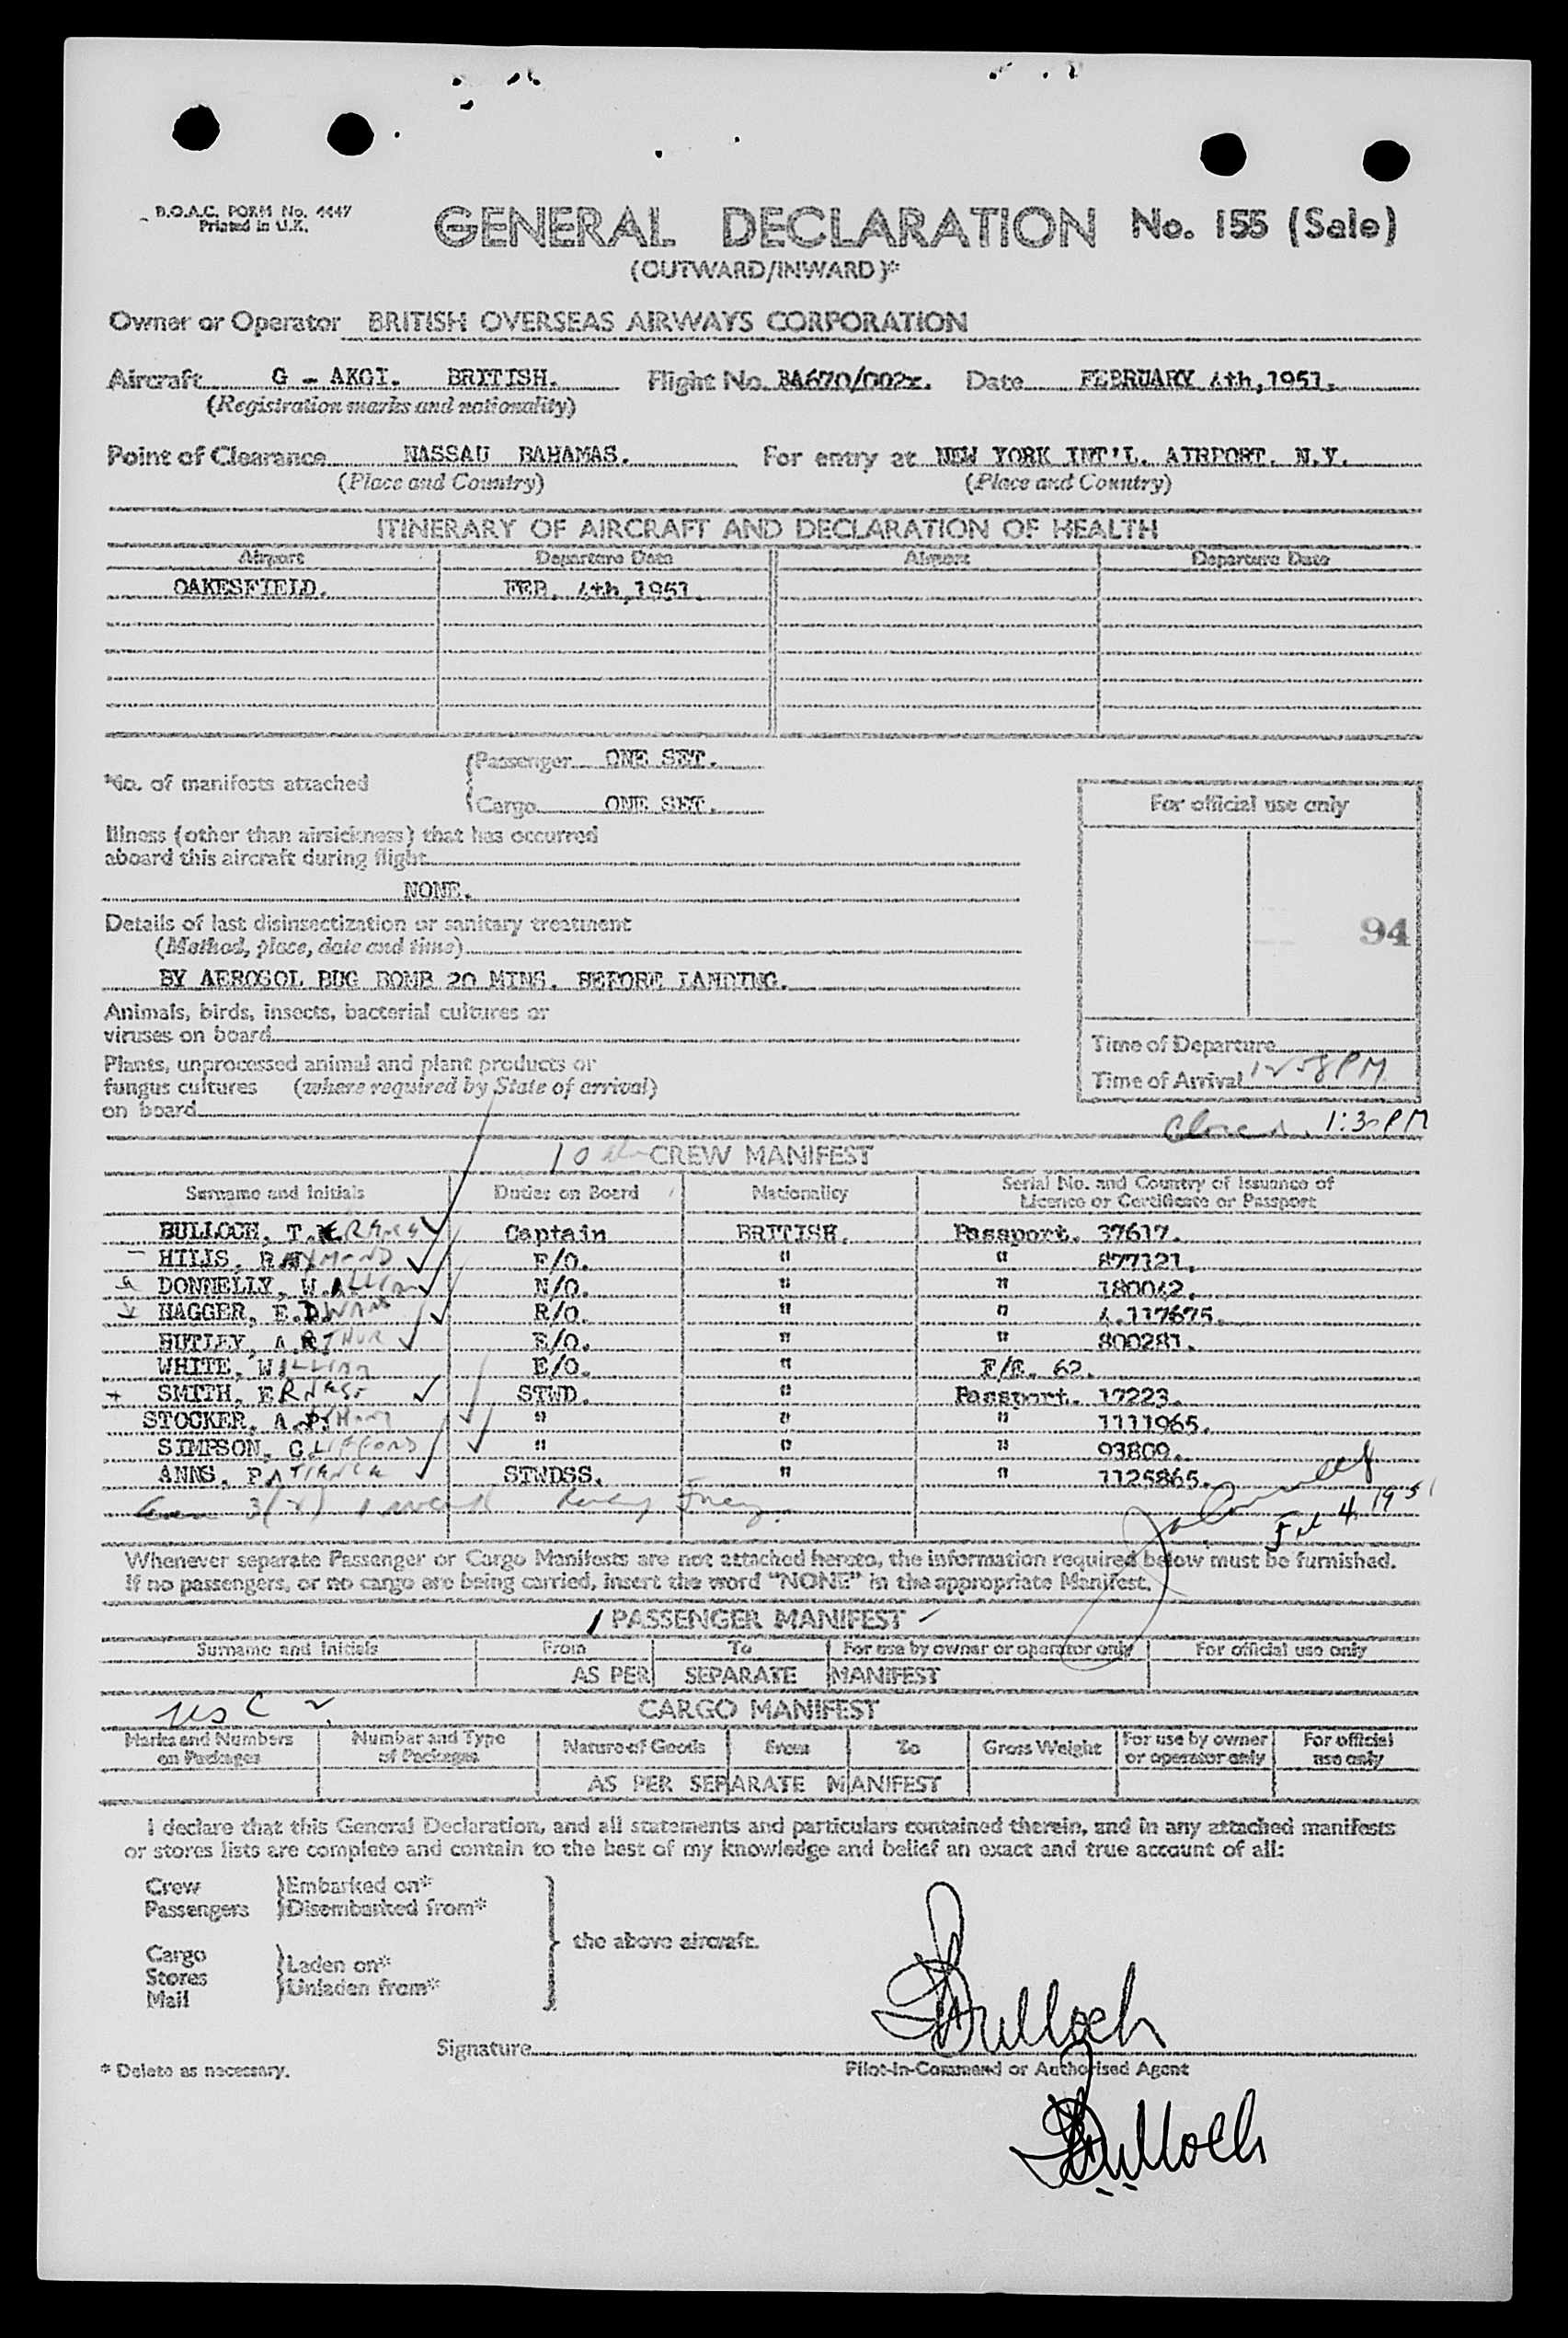 B.O.A.C. FORM No. 4447
Printed in U.K.
GENERAL DECLARATION No. 155 (Sale)
(OUTWARD/INWARD)*
Owner or Operator BRITISH OVERSEAS AIRWAYS CORPORATION
Aircraft G - AKGI. BRITISH. Flight No. BA670/002x. Date FEBRUARY 4th, 1951.
(Registration marks and nationality)
Point of Clearance NASSAU BAHAMAS. For entry at NEW YORK INT'L. AIRPORT. N.Y.
(Place and Country) (Place and Country)
ITINERARY OF AIRCRAFT AND DECLARATION OF HEALTH
Airport Departure Date Airport Departure Date
OAKESFIELD. FEB. 4th, 1951.
*No. of manifests attached
Passenger ONE SET.
Cargo ONE SET.
For official use only
Illness (other than airsickness) that has occurred
aboard this aircraft during flight
NONE.
Details of last disinsectization or sanitary treatment
(Method, place, date and time)
94
BY AEROSOL BUG BOMB 20 MINS. BEFORE LANDING.
Animals, birds, insects, bacterial cultures or
viruses on board
Time of Departure
Plants, unprocessed animal and plant products or
fungus cultures (where required by State of arrival)
on board
Time of Arrival 12 58 PM
Closed 1:30 PM
10 CREW MANIFEST
Surname and Initials Duties on Board Nationality Serial No. and Country of Issuance of
Licence or Certificate or Passport
BULLOCH, T. Captain BRITISH. Passport. 37617.
HILLS, RAYMOND F/O. " " 877121.
DONNELLY, WILLIAM N/O. " " 180042.
HAGGER, EDWARD R/O. " " 4.117675.
BUTLEY, ARTHUR E/O. " " 800281.
WHITE, WILLIAM E/O. " F/E. 62.
SMITH, ERNEST STWD. " Passport. 17223.
STOCKER, A. " " " 1111965.
SIMPSON, CLIFFORD " " " 93809.
ANNS, PATIENCE STWDSS. " " 1125865.
Feb 4 1951
Whenever separate Passenger or Cargo Manifests are not attached hereto, the information required below must be furnished.
If no passengers, or no cargo are being carried, insert the word "NONE" in the appropriate Manifest.
PASSENGER MANIFEST
Surname and Initials From To For use by owner or operator only For official use only
AS PER SEPARATE MANIFEST
USC 2
CARGO MANIFEST
Marks and Numbers on Packages Number and Type of Packages Nature of Goods From To Gross Weight For use by owner or operator only For official use only
AS PER SEPARATE MANIFEST
I declare that this General Declaration, and all statements and particulars contained therein, and in any attached manifests
or stores lists are complete and contain to the best of my knowledge and belief an exact and true account of all:
Crew Embarked on*
Passengers Disembarked from*
the above aircraft.
Cargo
Stores Laden on*
Mail Unladen from*
Bulloch
Signature
Pilot-in-Command or Authorised Agent
* Delete as necessary.
Bulloch